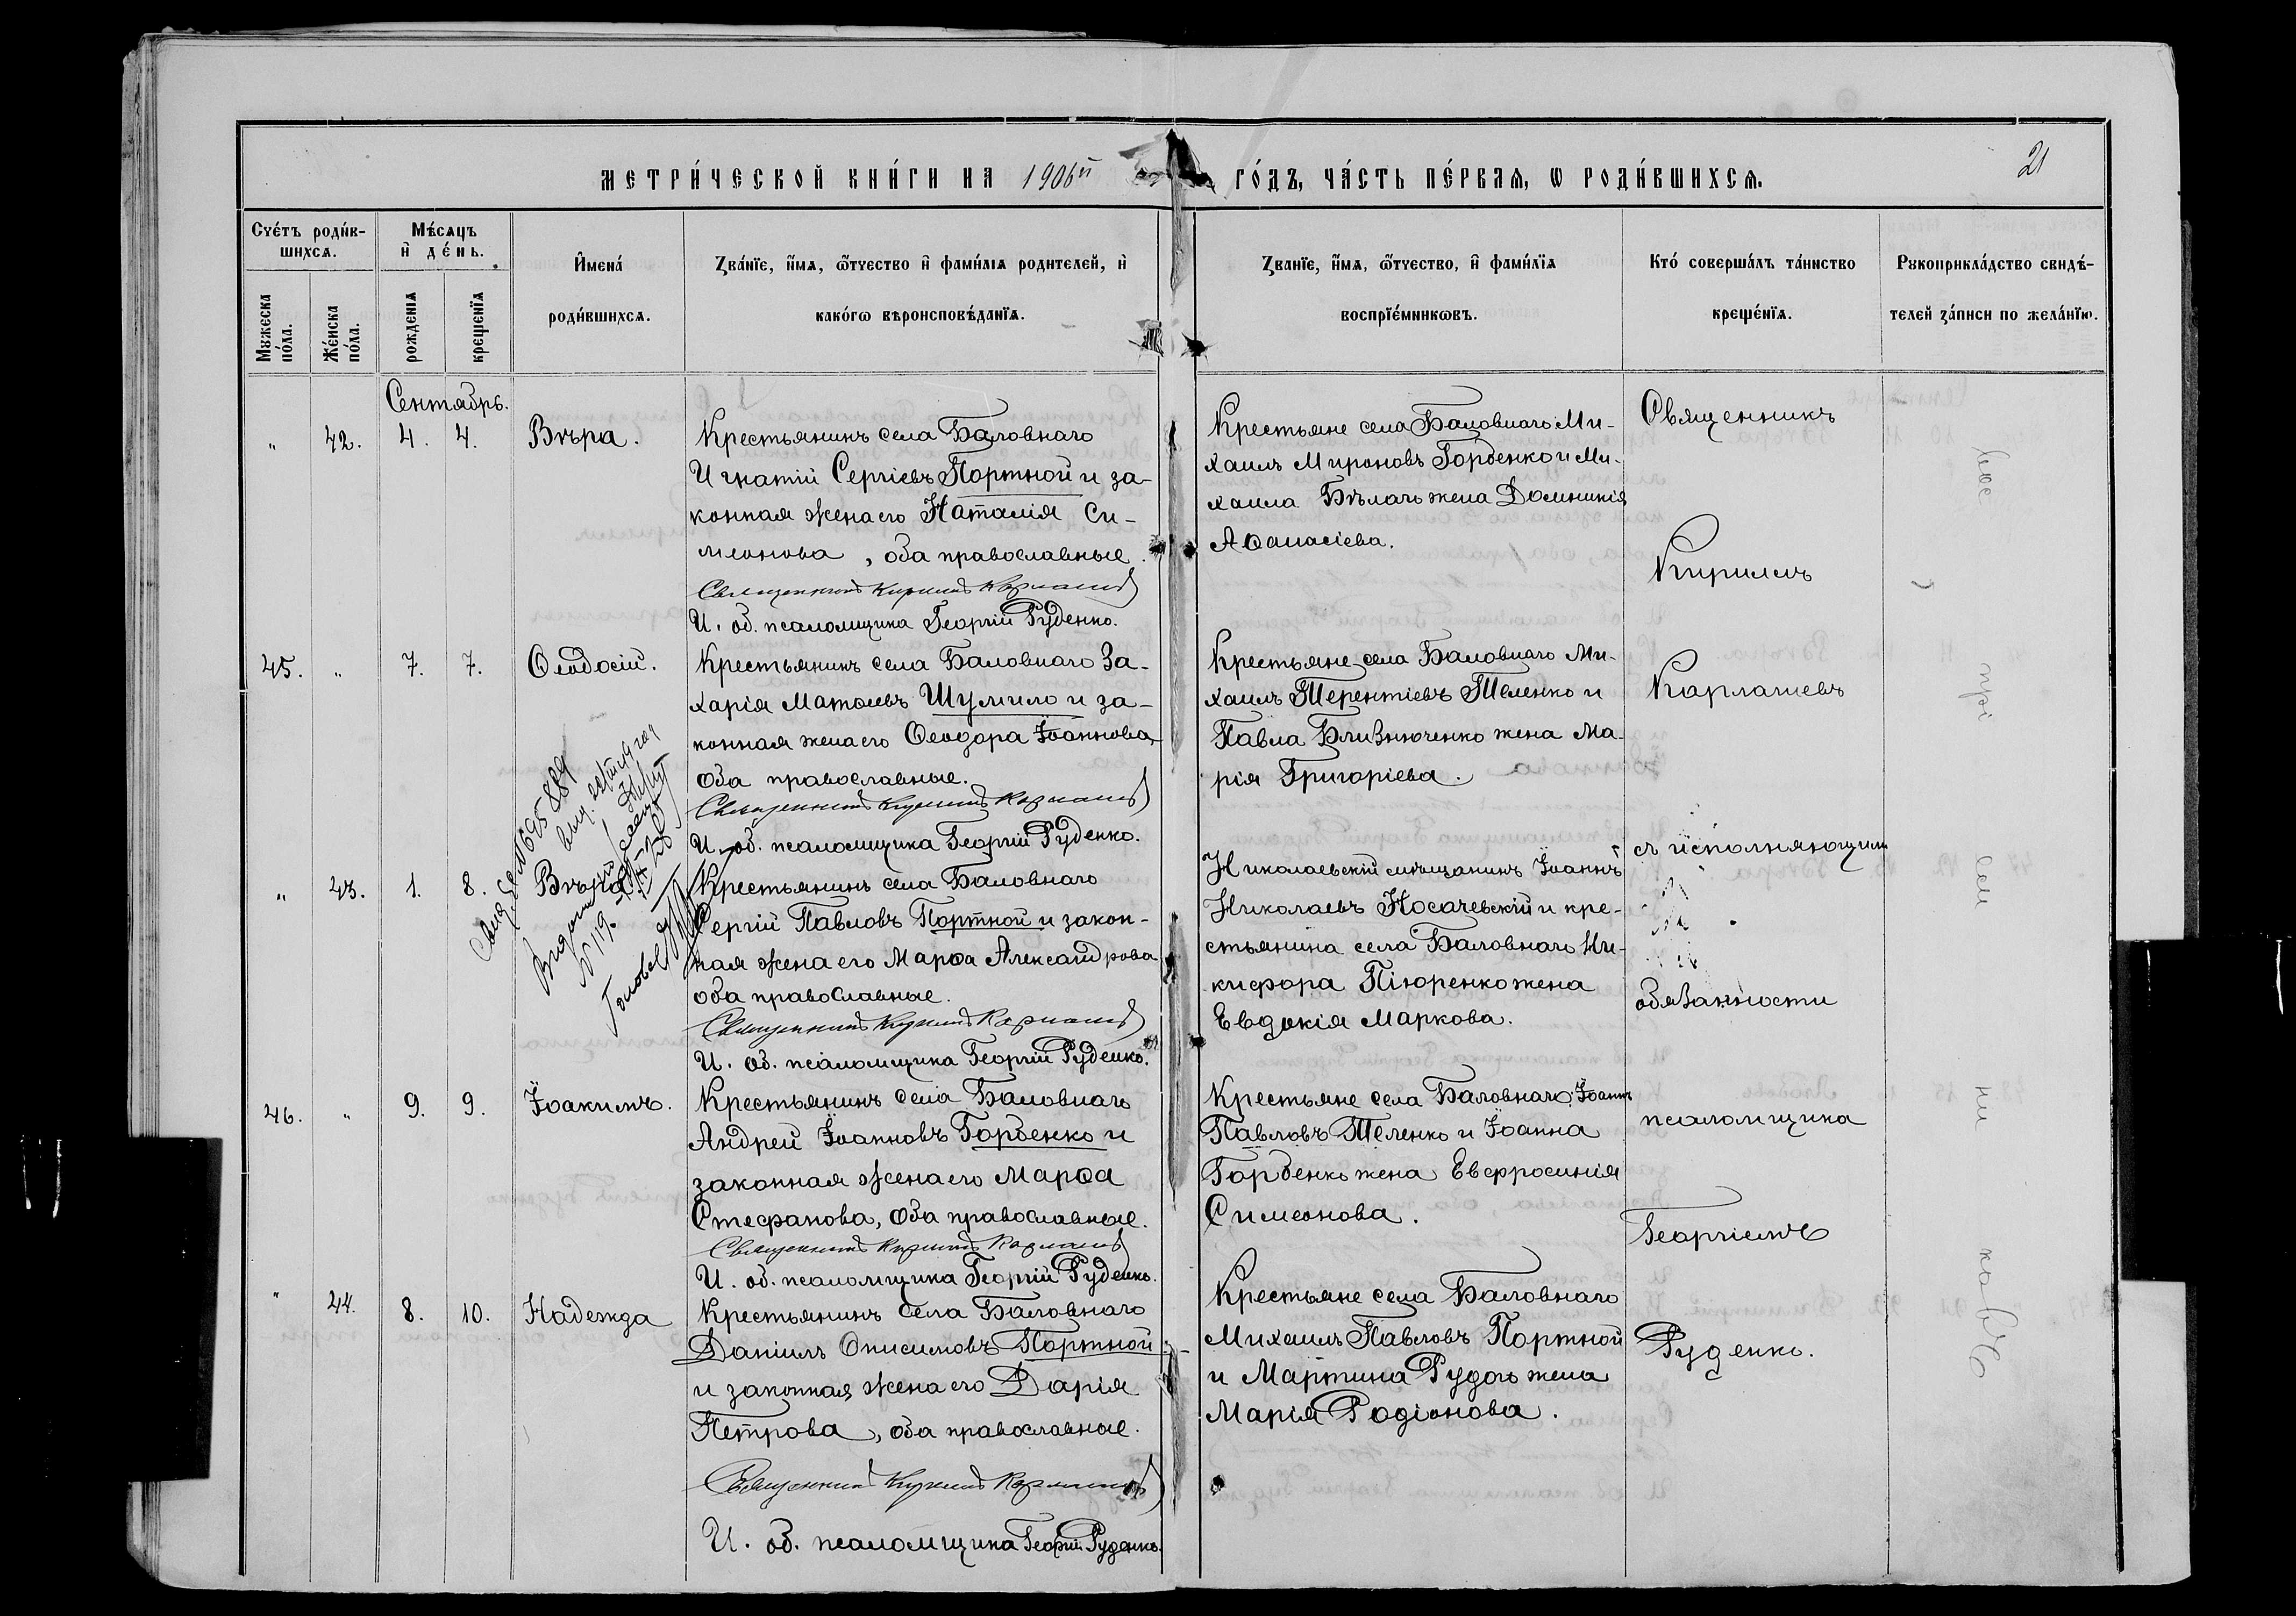 МЕТРИ́ЧЕСКОЙ КНИ́ГИ НА 1906й ГО́ДЪ, ЧА́СТЬ ПЕ́РВАЯ, Ѡ РОДИ́ВШИХСЯ.
21
Счéтъ роди́в-
шихся.
Мѣ́сяцъ
и҆ де́нь.
И҆мена́
роди́вшихся.
Зва́нїе, и҆́мя, ѻ҆́тчество и҆ фами́лїя родителей, и҆
како́гѡ вѣроисповѣ́данїя.
Зва́нїе, и҆́мя, ѻ҆́тчество, и҆ фами́лїя
воспрїе́мникѡвъ.
Кто́ соверша́лъ та́инство
креще́нїя.
Рукоприкла́дство свидѣ́-
телей за́писи по жела́нїю.
Мужеска
по́ла.
Же́нска
по́ла.
рожденїя
крещенїя
Сентябрь.
" 42. 4. 4. Вѣра.
Крестьянинъ села Баловнаго
Игнатій Сергіевъ Портной и за-
конная жена его Наталія Си-
меонова, оба православные.
Священникъ Кириллъ
И. об. псаломщика Георгій Руденко.
Крестьяне села Баловнаго Ми-
хаилъ Мироновъ Горбенко и Ми-
хаила Бѣлачъ жена Домникія
Аѳанасіева.
Священникъ
Кириллъ
45. " 7. 7. Ѳеодосій.
Крестьянинъ села Баловнаго За-
харія Матѳіевъ Шумило и за-
конная жена его Ѳеодора Іоаннова,
оба православные.
Священникъ Кириллъ
И. об. псаломщика Георгій Руденко.
Крестьяне села Баловнаго Ми-
хаилъ Терентіевъ Теленко и
Павла Близнюченко жена Ма-
рія Григоріева.
Карпачевъ
" 43. 1. 8. Вѣра
Крестьянинъ села Баловнаго
Сергій Павловъ Портной и закон-
ная жена его Марѳа Александрова
оба православные.
Священникъ Кириллъ
И. об. псаломщика Георгій Руденко.
Николаевскій мѣщанинъ Іоаннъ
Николаевъ Косачевскій и кре-
стьянина села Баловнаго Ни-
кифора Пiюренко жена
Евдокія Маркова.
съ исполняющимъ
обязанности
46. " 9. 9. Іоакимъ.
Крестьянинъ села Баловнаго
Андрей Іоанновъ Горбенко и
законная жена его Марѳа
Стефанова, оба православные.
Священникъ Кириллъ
И. об. псаломщика Георгій Руденко.
Крестьяне села Баловнаго Іоаннъ
Павловъ Теленко и Іоанна
Горбенко жена Евфросинія
Симеонова.
псаломщика
Георгіемъ
" 44. 8. 10. Надежда
Крестьянинъ села Баловнаго
Даніилъ Онисимовъ Портной
и законная жена его Дарія
Петрова, оба православные.
Священникъ Кириллъ
И. об. псаломщика Георгій Руденко.
Крестьяне села Баловнаго
Михаилъ Павловъ Портной
и Мартина Рудого жена
Марія Родіонова.
Руденко.